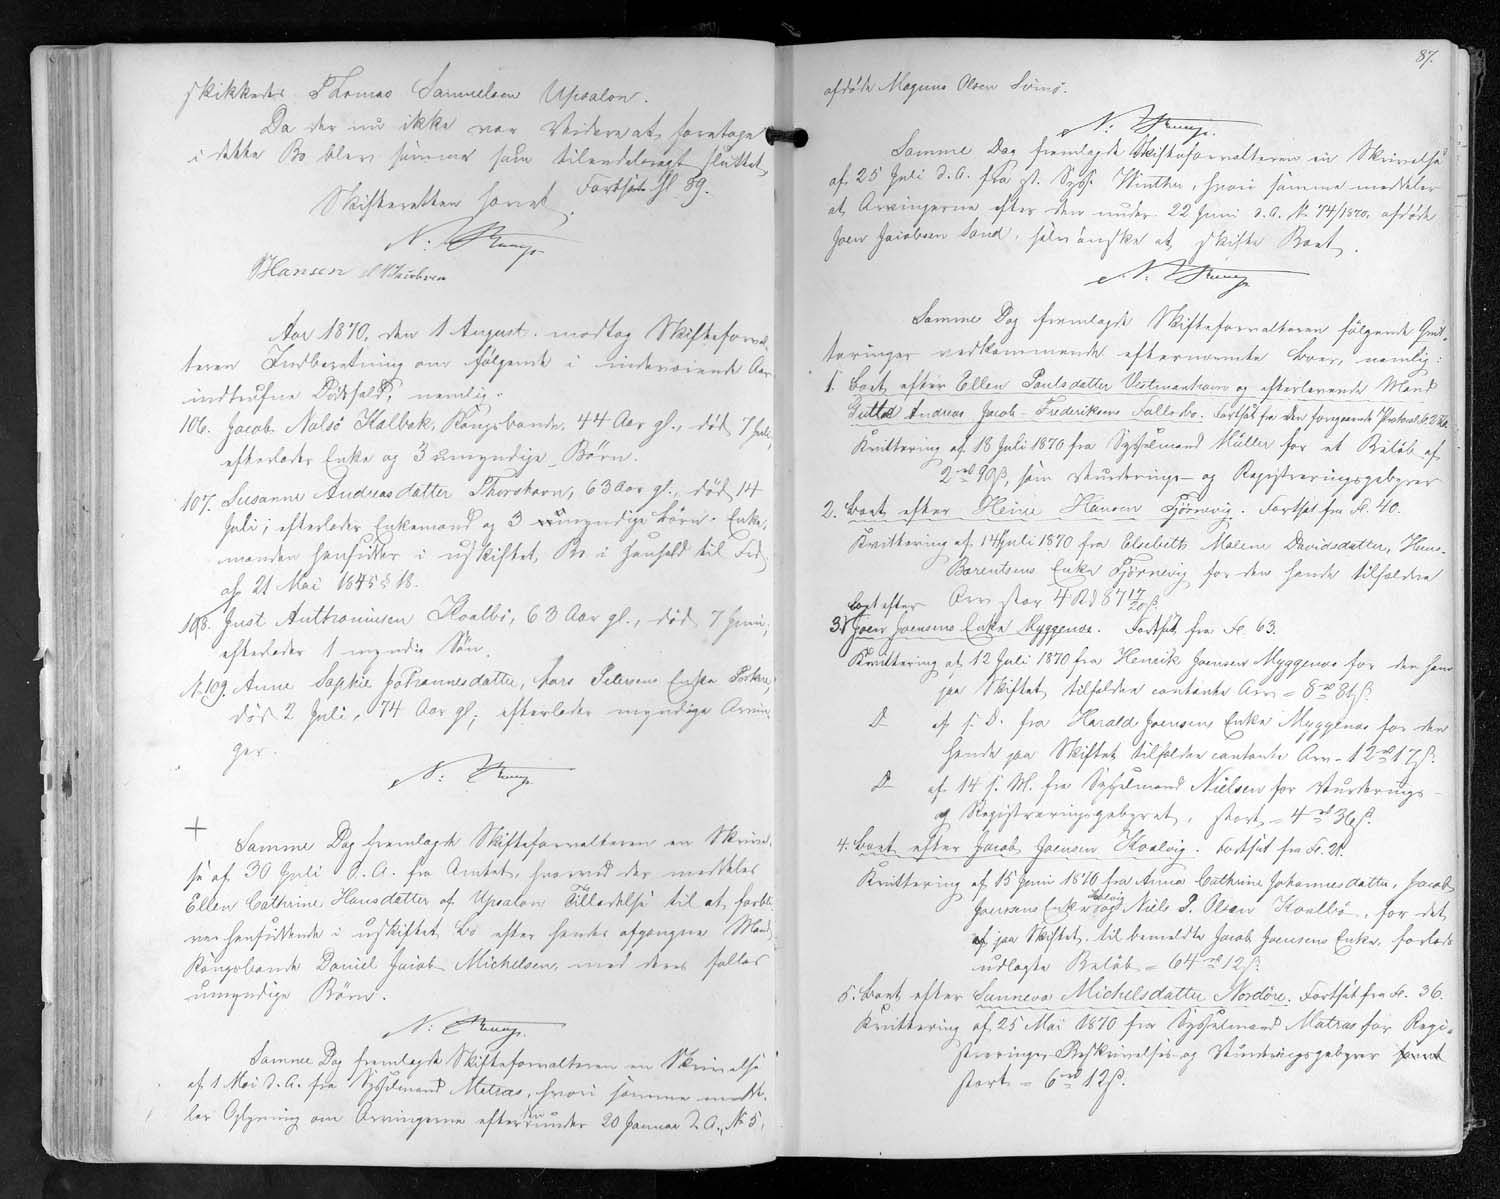 skikkedes Thomas Samuelsen Upsalon.
Da der nu ikke var Videre at foretage
i dette Bo blev samme som tilendebragt sluttet
Skifteretten hævet. Fortsat fol. 89.
N:
Hansen Jacobsen
Aar 1870, den 1 August modtog Skifteforval-
teren Indberetning om følgende i indeværende Aar
indtrufne Dødsfald, nemlig:
106. Jacob Nolsø Kalbak, Kongsbonde, 44 Aar gl., død 7 Juli,
efterlader Enke og 3 umyndige Børn.
107. Susanne Andreasdatter Thorshavn, 63 Aar gl., død 14
Juli; efterlader Enkemand og 3 umyndige Børn. Enke-
manden hensidder i uskiftet Bo i Henhold til Frd
af 21 Mai 1845 § 18.
108. Just Anthoniusen Kvalbø, 63 Aar gl., død 7 Juni,
efterlader 1 myndig Søn.
N. 109 Anne Sophie Johannesdatter, Lars Petersens Enke
død 2 Juli, 74 Aar gl; efterlader myndige Arvin-
ger.
N:
+ Samme Dag fremlagde Skifteforvalteren en Skrivel-
se af 30 Juli d. A. fra Amtet, hvorved der meddeles
Ellen Cathrine Hansdatter af Upsalon Tilladelse til at forbli-
ve hensiddende i uskiftet Bo efter hendes afgangne Mand
Kongsbonde Daniel Jacob Michelsen, med deres fælles
umyndige Børn.
N:
Samme Dag fremlagde Skifteforvalteren en Skrivelse
af 1 Mai d. A. fra Sysselmand Matras, hvori samme medde-
ler Oplysning om Arvingerne efter den under 20 Januar d. A., No 5,
87.
afdøde Magnus Olsen Svinø.
N:
Samme Dag fremlagde Skifteforvalteren en Skrivelse
af 25 Juli d. A. fra st. Syss. Winther, hvori samme meddeler
at Arvingerne efter den under 22 Juni d. A. No 74/1870, afdøde
Joen Jacobsen Sand, selv ønske at skifte Boet.
N:
Samme Dag fremlagde Skifteforvalteren følgende Qvit-
teringer vedkommende efternævnte Boer, nemlig:
1. Boet efter Ellen Poulsdatter Vestmanhavn og efterlevende Mand
Andreas Jacob Frederiksens Fællesbo. Fortsat fra den foregaaende Protocol
Kvittering af 18 Juli 1870 fra Sysselmand Müller for et Beløb af
2 rd 90 ß, som Vurderings- og Registreringsgebyrer
2. Boet efter Heine Hansen Tjørnevig. Fortsat fra Fol. 40.
Kvittering af 14 Juli 1870 fra Elsebeth Malene Davidsdatter, Hans
Barentsens Enke Tjørnevig for den hende tilfaldne
Arv stor 4 Rd 87 17/20 ß.
3. Boet efter Joen Joensens Enke Myggenæs. Fortsat fra Fol. 63.
Kvittering af 12 Juli 1870 fra Henrik Joensen Myggenæs for den ham
paa Skiftet tilfaldne contante Arv = 8 rd 81 ß.
D af s. D. fra Harald Joensens Enke Myggenæs for den
hende paa Skiftet tilfaldne contante Arv = 12 rd 17 ß.
D af 14 s. M. fra Sysselmand Nielsen for Vurderings-
og Registreringsgebyret, stort = 4 rd 36 ß.
4. Boet efter Jacob Joensen Hvalvig. Fortsat fra Fol. 21.
Kvittering af 15 Juni 1870 fra Anna Cathrine Johannesdatter, Jacob
Joensens Enke Hvalvig og Niels P. Olsen Kvalbø, for det
paa Skiftet til bemeldte Jacob Joensens Enke, forlods
udlagte Beløb = 64 rd 12 ß.
5. Boet efter Sunneva Michelsdatter Nordøre. Fortsat fra Fol. 36.
Kvittering af 25 Mai 1870 fra Sysselmand Matras for Regi-
strerings, Beskrivelses og Vurderingsgebyrer
stort = 6 rd 12 ß.